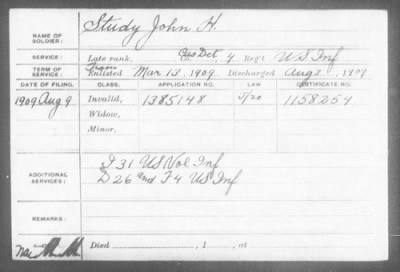 NAME OF SOLDIER: Study John H.
SERVICE: Late rank, Cas Det, 4 Reg't U S Inf
TERM OF SERVICE: Enlisted Mar 13, 1909, Discharged Aug 3, 1909
DATE OF FILING. CLASS. APPLICATION NO. LAW CERTIFICATE NO.
1909 Aug 9 Invalid, 1385148 1158254
Widow,
Minor,
ADDITIONAL SERVICES: I 31 US Vol Inf
D 26 and F 4 US Inf
REMARKS:
Died , 1 , at